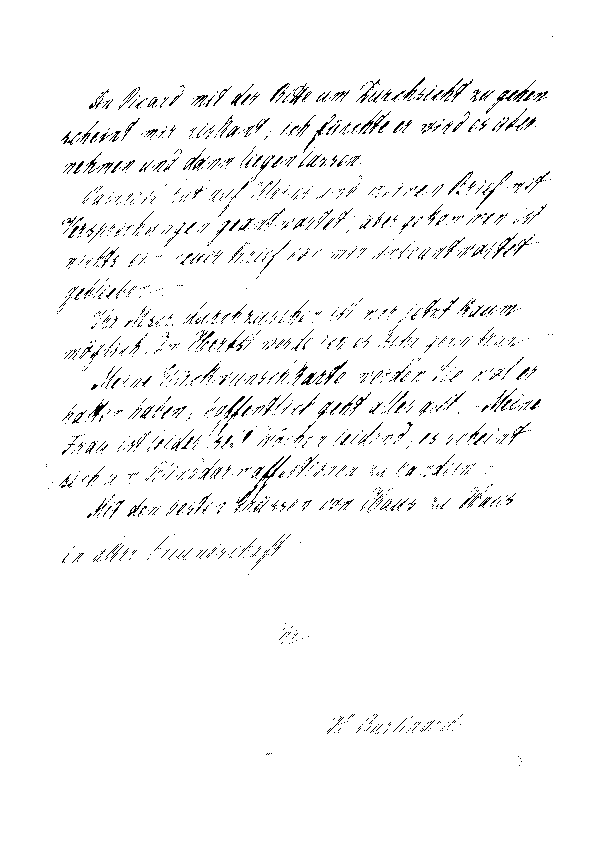 An Picard mit der Bitte um Durchsicht zu gehen
scheint mir riskant, ich fürchte er wird es über
nehmen und dann liegen lassen.
hat auf und meinen Brief mit
Versprechungen geantwortet, aber gekommen ist
nichts ein neuer Brief von mir unbeantwortet
geblieben.
Ihr durchzusehen ist mir jetzt kaum
möglich. Im Herbst werde ich es sehr gern tun.
Meine Glückwunschkarte werden Sie wol er
halten haben, hoffentlich geht alles gut. - Meine
Frau ist leider seit Wochen leidend, es scheint
sich um zu handeln.
Mit den besten Grüssen von Haus zu Haus
in alter Freundschaft
Ihr